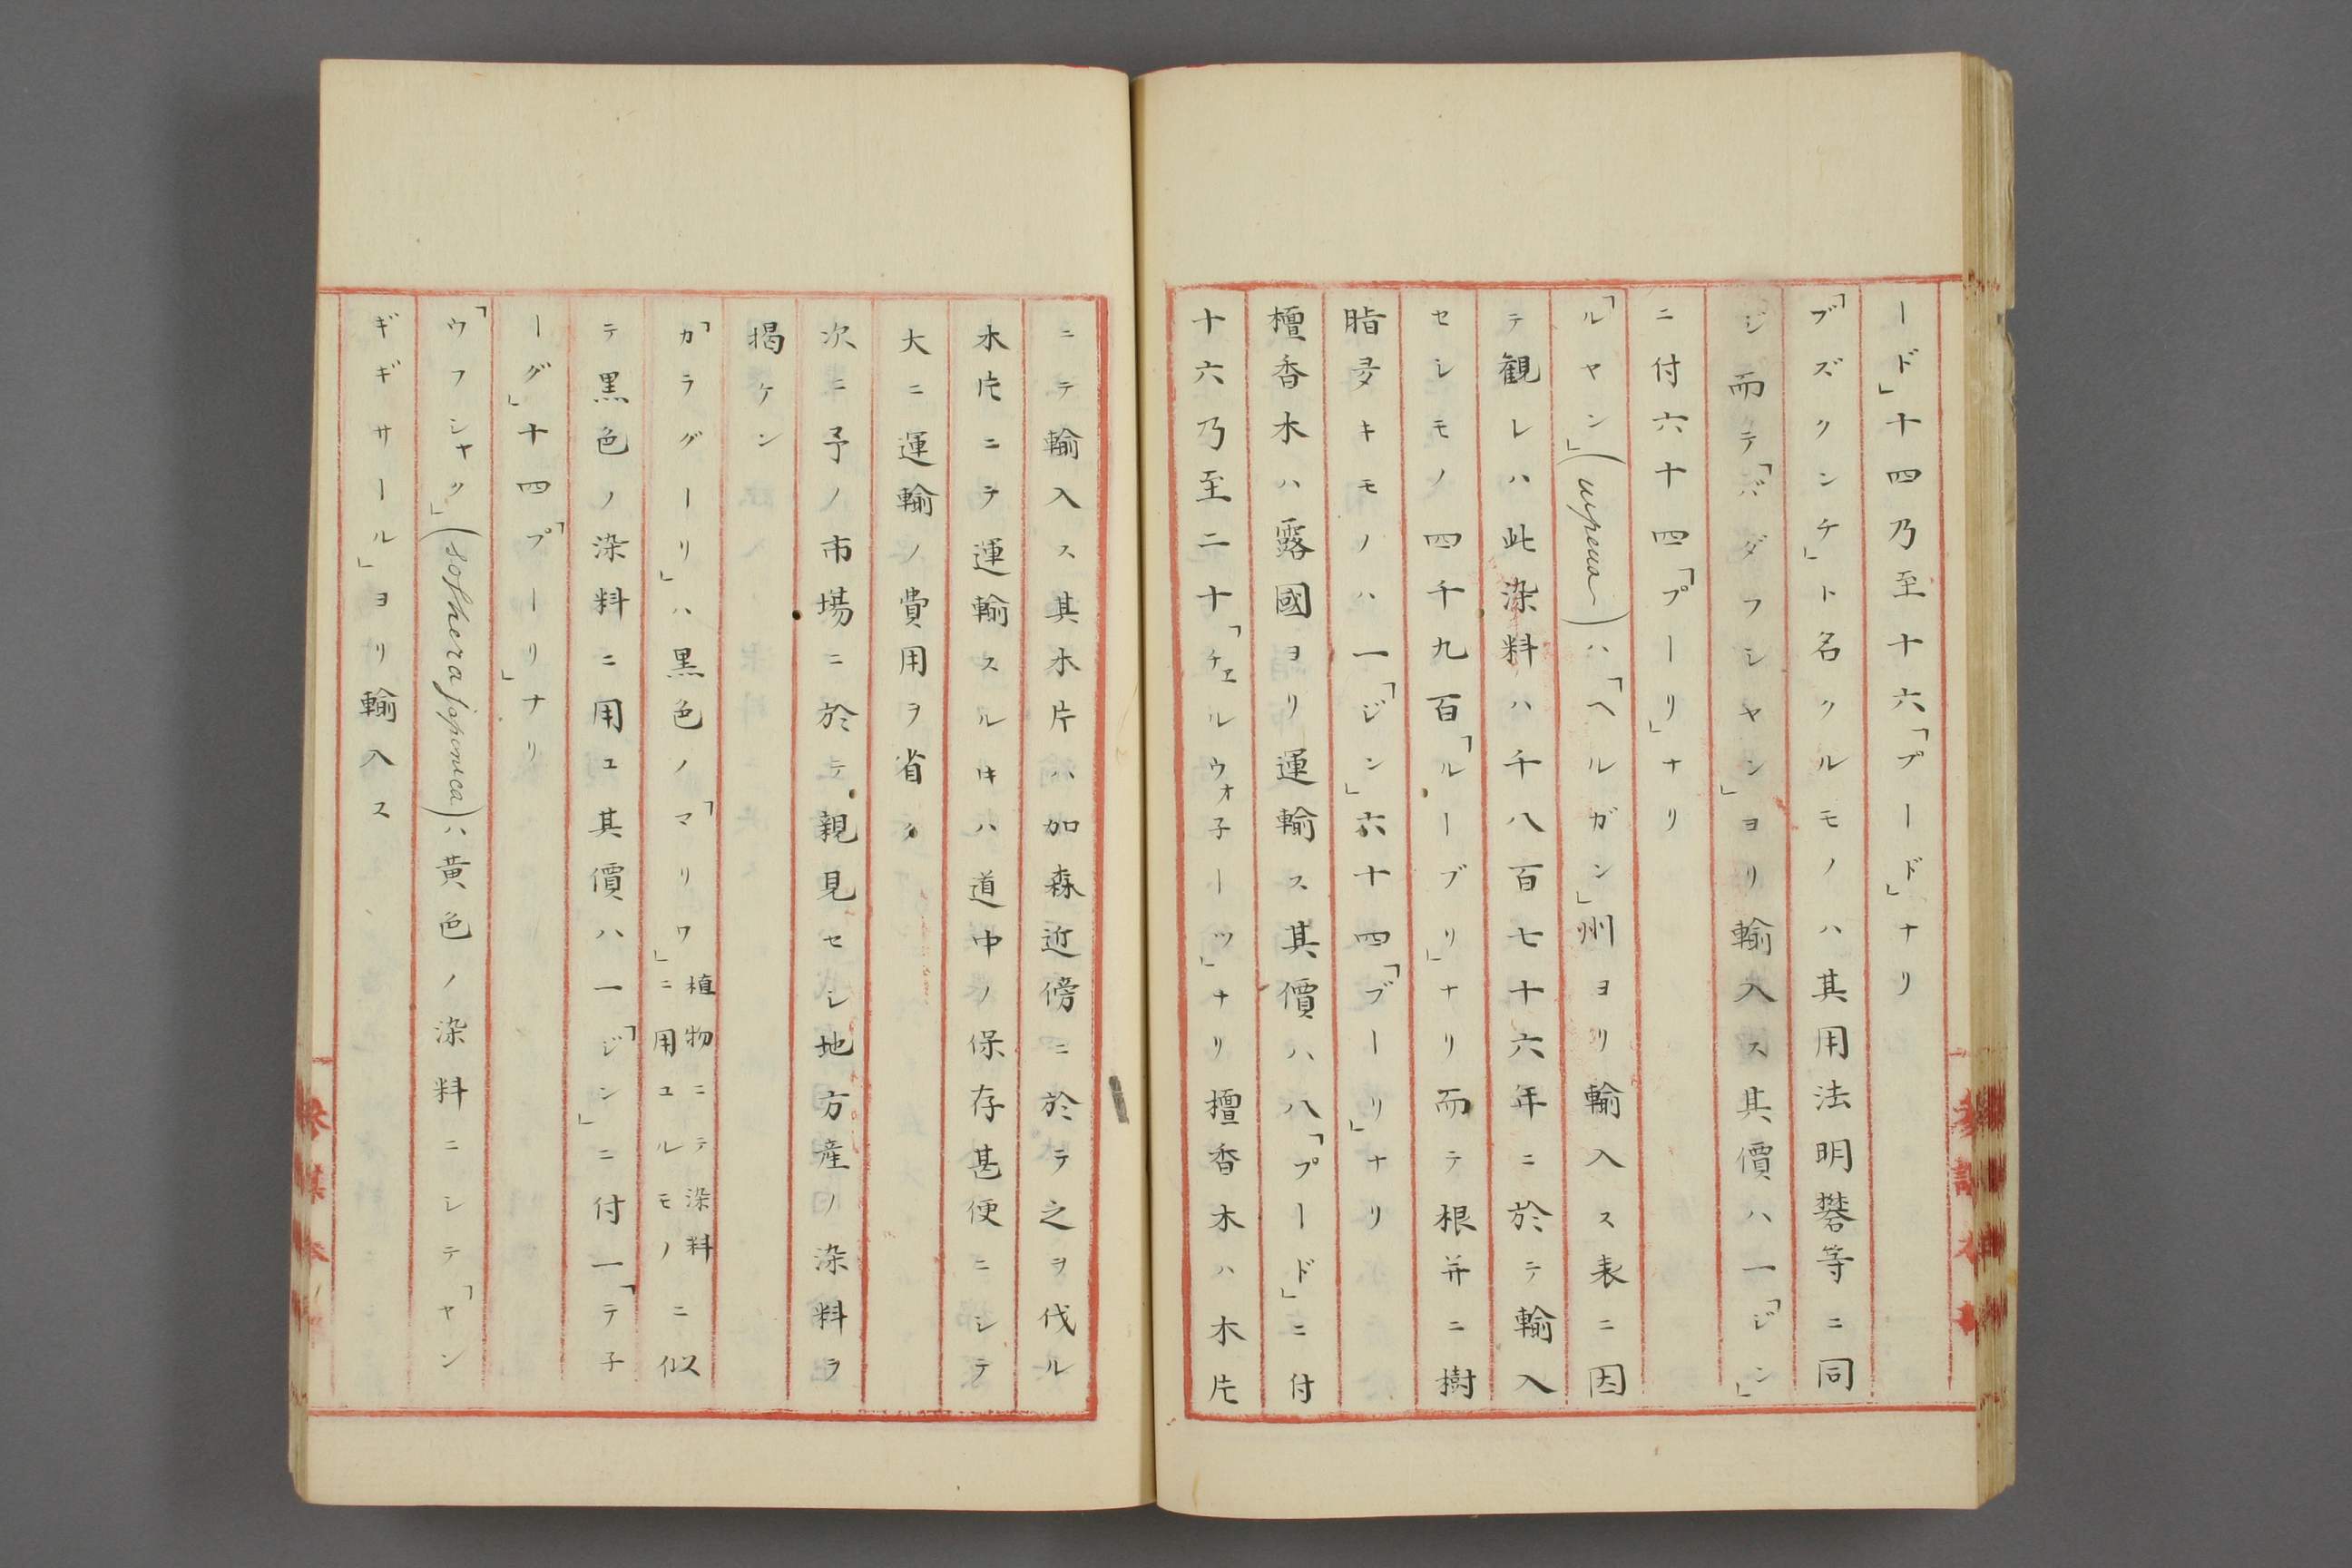 ード」十四乃至十六「プード」ナリ
「ブズクンチ」ト名クルモノハ其用法明礬等ニ同
ジ而テ「バダフシヤン」ヨリ輸入ス其價ハ一「ジン」
ニ付六十四「プーリ」ナリ
「ルヤン」(upeua)ハ「ヘルガン」州ヨリ輸入ス表ニ因
テ観レハ此染料ハ千八百七十六年ニ於テ輸入
セシモノ四千九百「ルーブリ」ナリ而テ根并ニ樹
脂夛キモノハ一「ジン」六十四「プーリ」ナリ
檀香木ハ露國ヨリ運輸ス其價ハ八「プード」ニ付
十六乃至二十「チヱルウォ子ーツ」ナリ檀香木ハ木片
ニテ輸入ス其木片ハ加森近傍ニ於テ之ヲ伐ル
木片ニテ運輸スルキハ道中ノ保存甚便ニシテ
大ニ運輸ノ費用ヲ省ク
次ニ予ノ市場ニ於テ親見セシ地方産ノ染料ヲ
掲ケン
「カラグーリ」ハ黒色ノ「マリワ」植物ニテ染料ニス
ニ用ユルモノニ似
テ黒色ノ染料ニ用ユ其價ハ一「ジン」ニ付一「テ子
ーグ」十四「プーリ」ナリ
「ウフシャク」(sophera japonica)ハ黄色ノ染料ニシテ「ヤン
ギギサール」ヨリ輸入ス